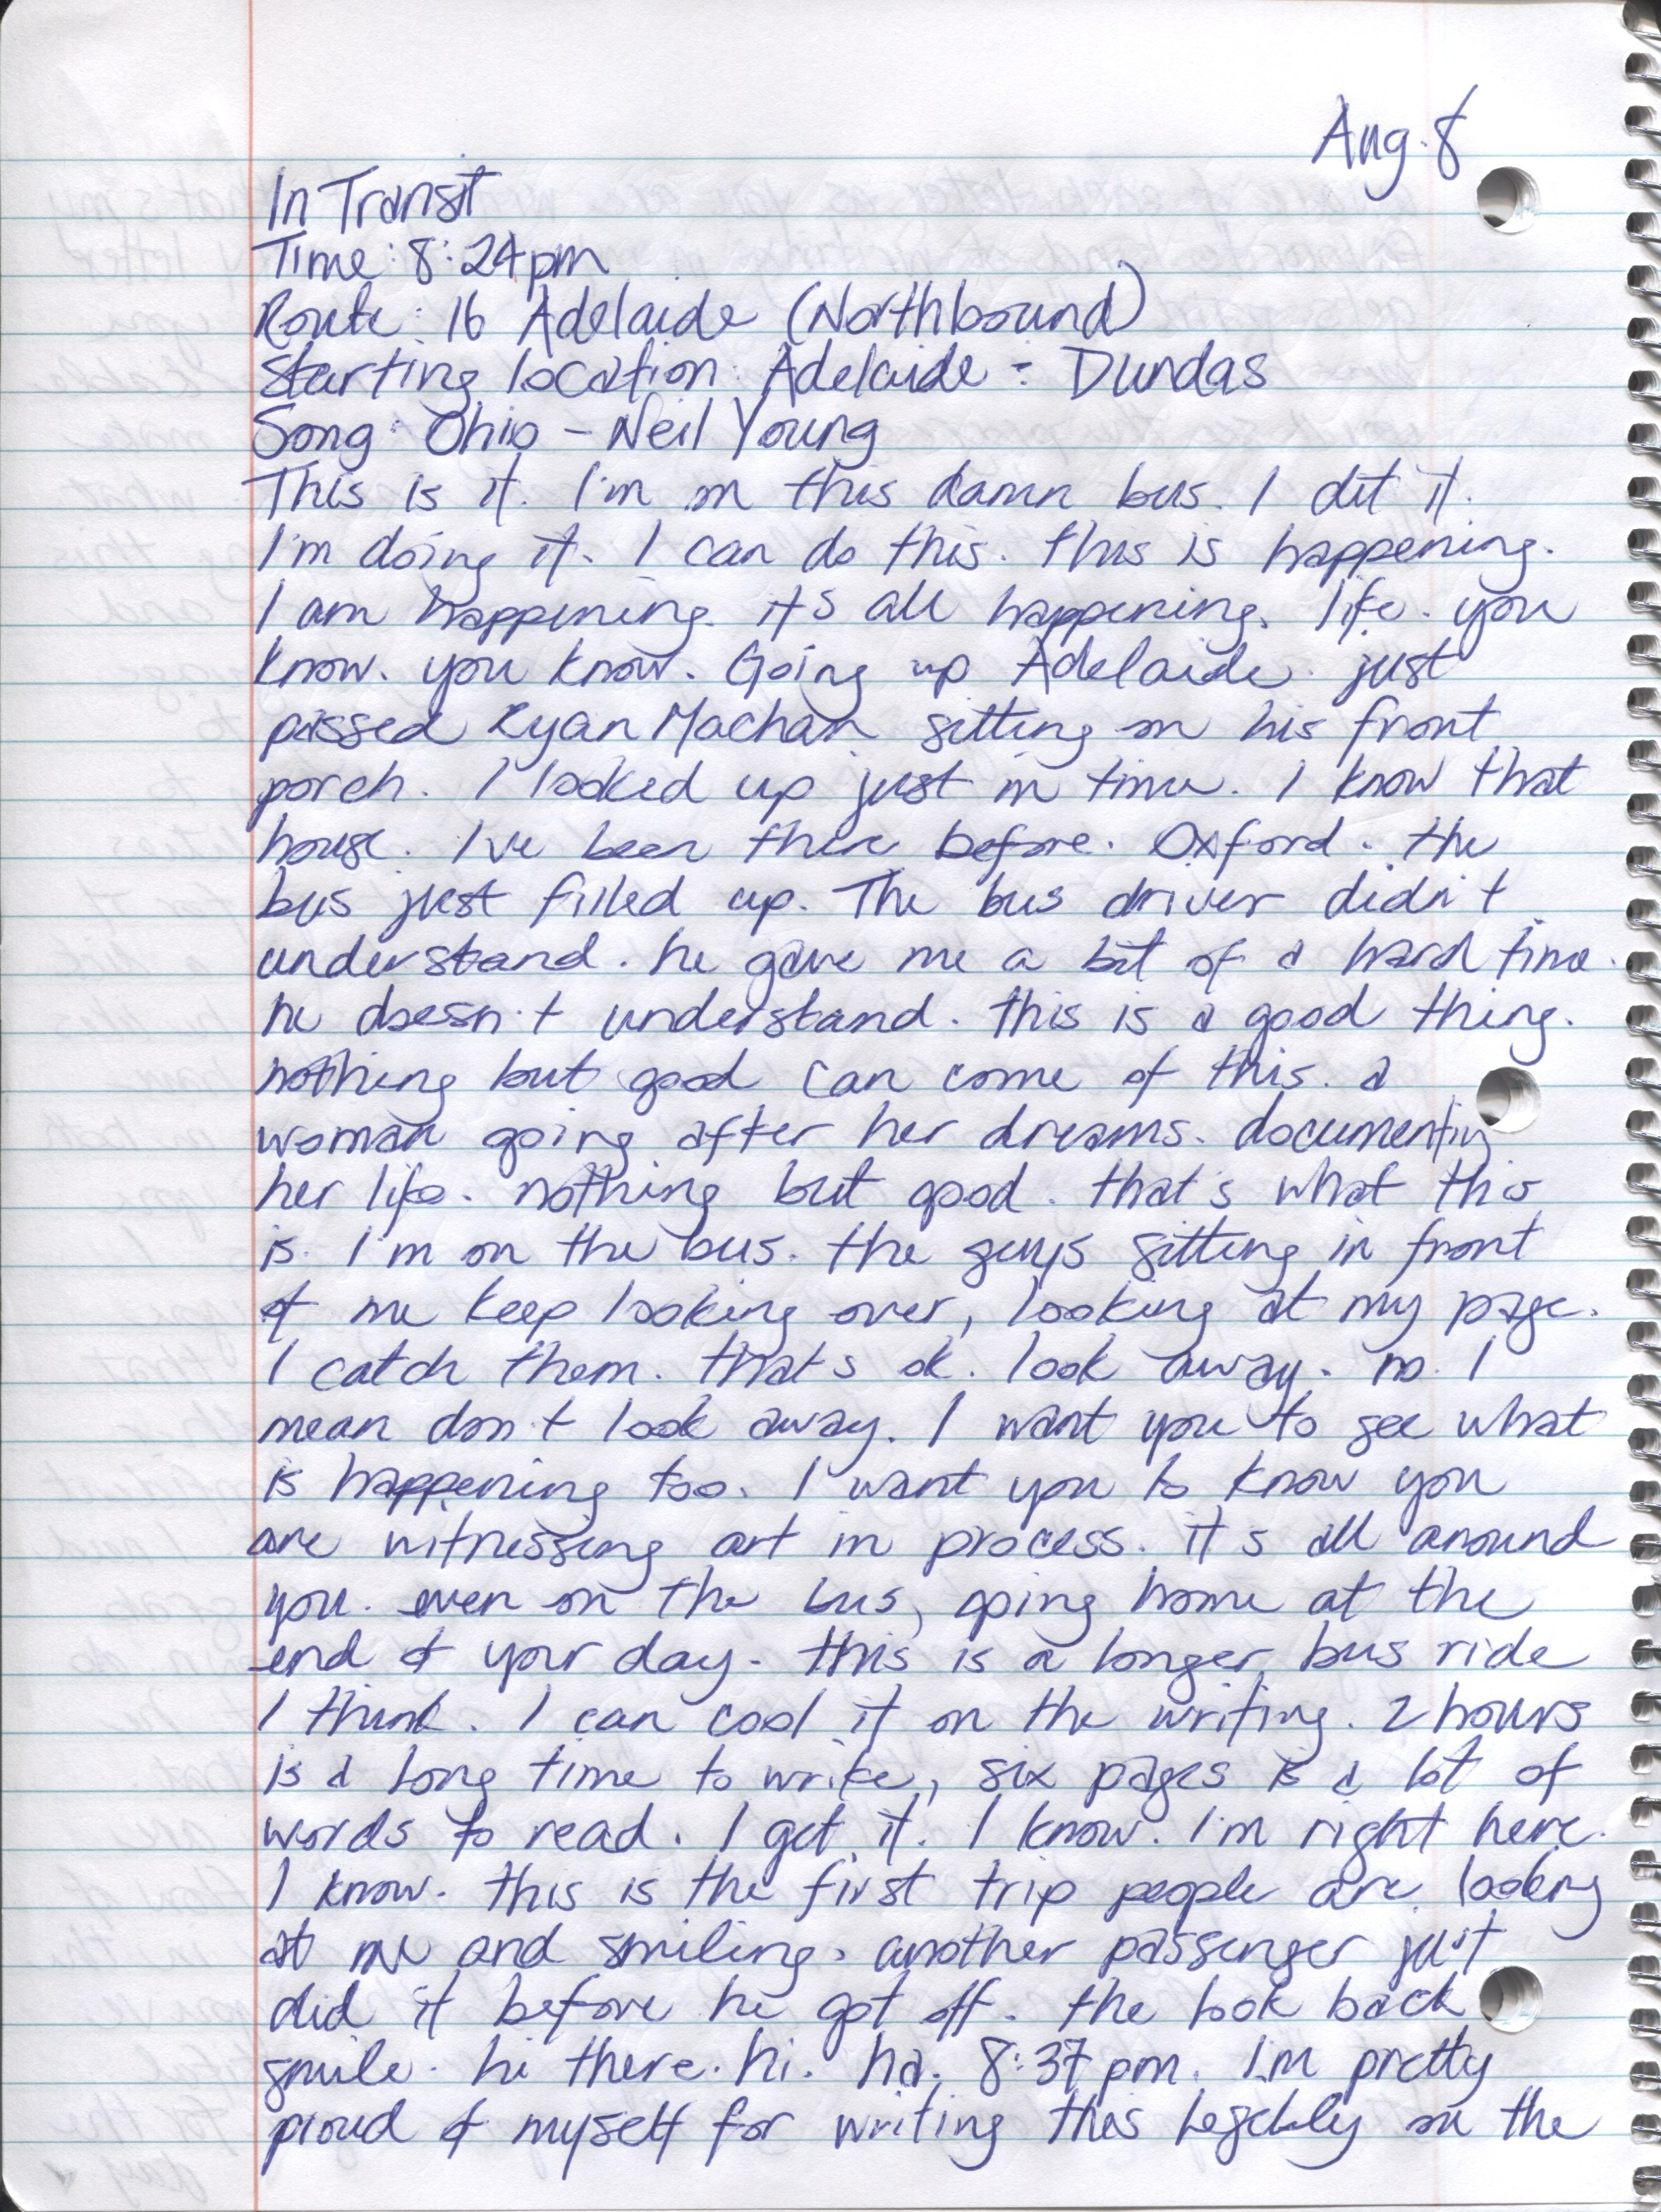 Aug. 8
In Transit
Time: 8:24pm
Route: 16 Adelaide (Northbound)
Starting location: Adelaide - Dundas
Song: Ohio - Neil Young
This is it. I'm on this damn bus. I did it.
I'm doing it. I can do this. this is happening.
I am happening. it's all happening. life. you
know. you know. Going up Adelaide. just
passed Ryan Machan sitting on his front
porch. I looked up just in time. I know that
house. I've been there before. Oxford. the
bus just filled up. The bus driver didn't
understand. he gave me a bit of a hard time.
he doesn't understand. this is a good thing.
nothing but good can come of this. a
woman going after her dreams. documenting
her life. nothing but good. that's what this
is. I'm on the bus. the guys sitting in front
of me keep looking over, looking at my page.
I catch them. that's ok. look away. no. I
mean don't look away. I want you to see what
is happening too. I want you to know you
are witnessing art in process. it's all around
you. even on the bus, going home at the
end of your day. this is a longer bus ride
I think. I can cool it on the writing. 2 hours
is a long time to write, six pages is a lot of
words to read. I get it. I know. I'm right here.
I know. this is the first trip people are looking
at me and smiling. another passenger just
did it before he got off. the look back
smile. hi there. hi. ha. 8:37pm. I'm pretty
proud of myself for writing this legibly on the